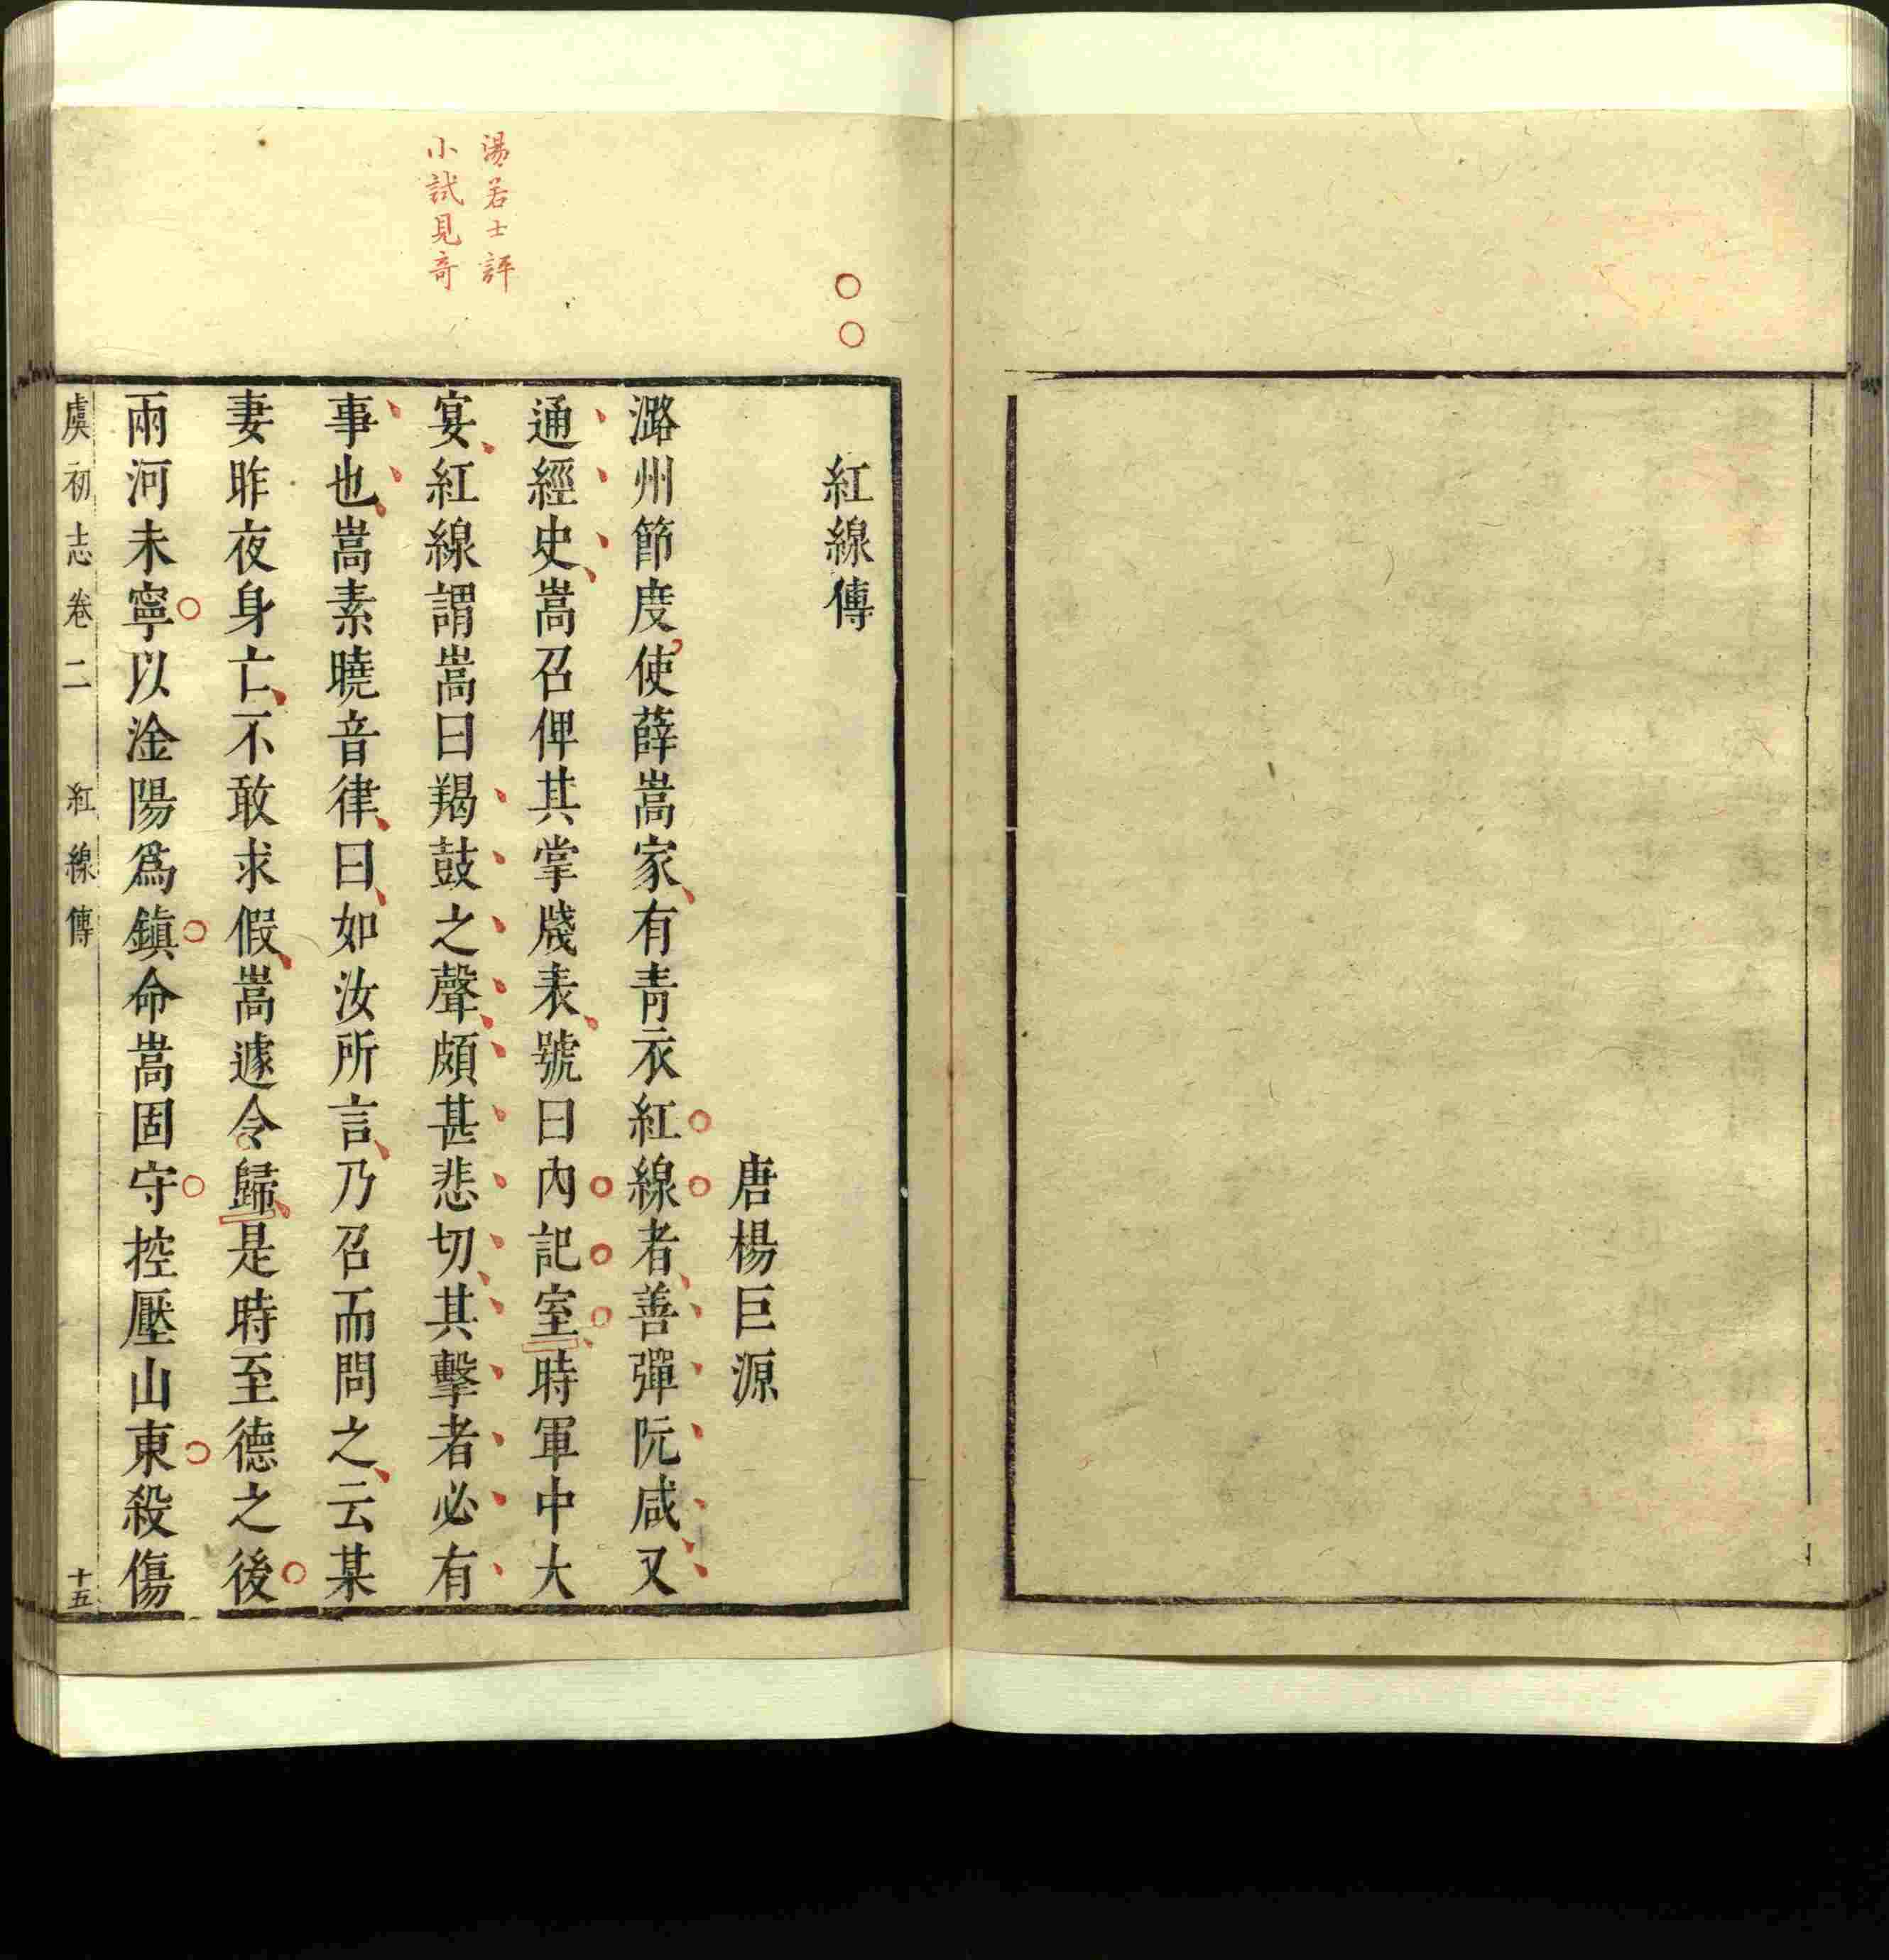 紅線傳
唐楊巨源
潞州節度使薛嵩家有青衣紅線者善彈阮咸又
通經史嵩召俾其掌牋表號曰內記室時軍中大
宴紅線謂嵩曰羯鼓之聲頗甚悲切其擊者必有
事也嵩素曉音律曰如汝所言乃召而問之云某
妻昨夜身亡不敢求假嵩遽令歸是時至德之後
兩河未寧以淦陽為鎮命嵩固守控壓山東殺傷
湯若士評
小試見奇
虞初志卷二 紅線傳 十五